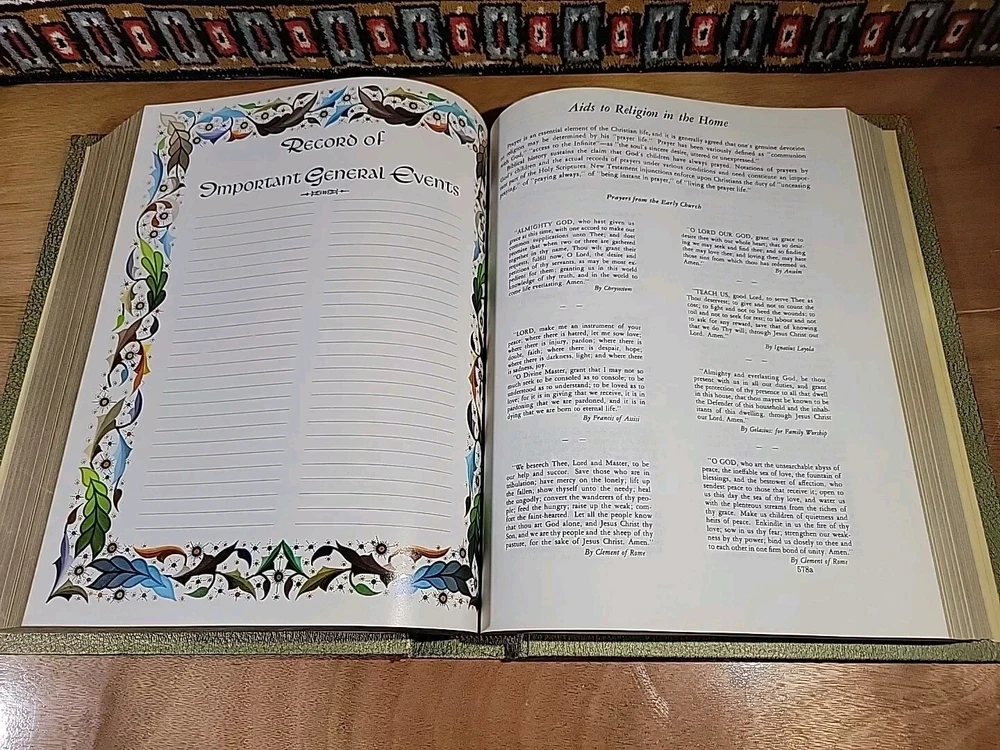 Record of
Important General Events
Aids to Religion in the Home
Prayer is an essential element of the Christian life, and it is generally agreed that one's genuine devotion
to religion may be determined by his "prayer life." Prayer has been variously defined as "communion
with God," "access to the Infinite"—as "the soul's sincere desire, uttered or unexpressed."
Biblical history sustains the claim that God's children have always prayed. Notations of prayers by
God's children and the actual records of prayers under various conditions and need constitute an impor-
tant part of the Holy Scriptures. New Testament injunctions enforce upon Christians the duty of "unceasing
praying," of "praying always," of "being instant in prayer," of "living the prayer life."
Prayers from the Early Church
"ALMIGHTY GOD, who hast given us
grace at this time, with one accord to make our
common supplications unto Thee; and dost
promise that when two or three are gathered
together in thy name, Thou wilt grant their
requests, fulfill now, O Lord, the desire and
petitions of thy servants, as may be most ex-
pedient for them; granting us in this world
knowledge of thy truth, and in the world to
come life everlasting. Amen."
By Chrysostom
"LORD, make me an instrument of your
peace, where there is hatred, let me sow love;
where there is injury, pardon; where there is
doubt, faith; where there is despair, hope;
where there is darkness, light; and where there
is sadness, joy.
"O Divine Master, grant that I may not so
much seek to be consoled as to console; to be
understood as to understand; to be loved as to
love; for it is in giving that we receive, it is in
pardoning that we are pardoned, and it is in
dying that we are born to eternal life."
By Francis of Assisi
"We beseech Thee, Lord and Master, to be
our help and succor. Save those who are in
tribulation; have mercy on the lonely; lift up
the fallen; show thyself unto the needy; heal
the ungodly; convert the wanderers of thy peo-
ple; feed the hungry; raise up the weak; com-
fort the faint-hearted. Let all the people know
that thou art God alone, and Jesus Christ thy
Son, and we are thy people and the sheep of thy
pasture, for the sake of Jesus Christ. Amen."
By Clement of Rome
"O LORD OUR GOD, grant us grace to
desire thee with our whole heart; that so desir-
ing we may seek and find thee; and so finding
thee may love thee; and loving thee, may hate
those sins from which thou has redeemed us.
Amen."
By Anselm
"TEACH US, good Lord, to serve Thee as
Thou deservest; to give and not to count the
cost; to fight and not to heed the wounds; to
toil and not to seek for rest; to labour and not
to ask for any reward, save that of knowing
that we do Thy will; through Jesus Christ our
Lord. Amen."
By Ignatius Loyola
"Almighty and everlasting God, be thou
present with us in all our duties, and grant
the protection of thy presence to all that dwell
in this house, that thou mayest be known to be
the Defender of this household and the inhab-
itants of this dwelling, through Jesus Christ
our Lord. Amen."
By Gelasius: for Family Worship
"O GOD, who art the unsearchable abyss of
peace, the ineffable sea of love, the fountain of
blessings, and the bestower of affection, who
sendest peace to those that receive it; open to
us this day the sea of thy love, and water us
with the plenteous streams from the riches of
thy grace. Make us children of quietness and
heirs of peace. Enkindle in us the fire of thy
love; sow in us thy fear; strengthen our weak-
ness by thy power; bind us closely to thee and
to each other in one firm bond of unity. Amen."
By Clement of Rome
578a